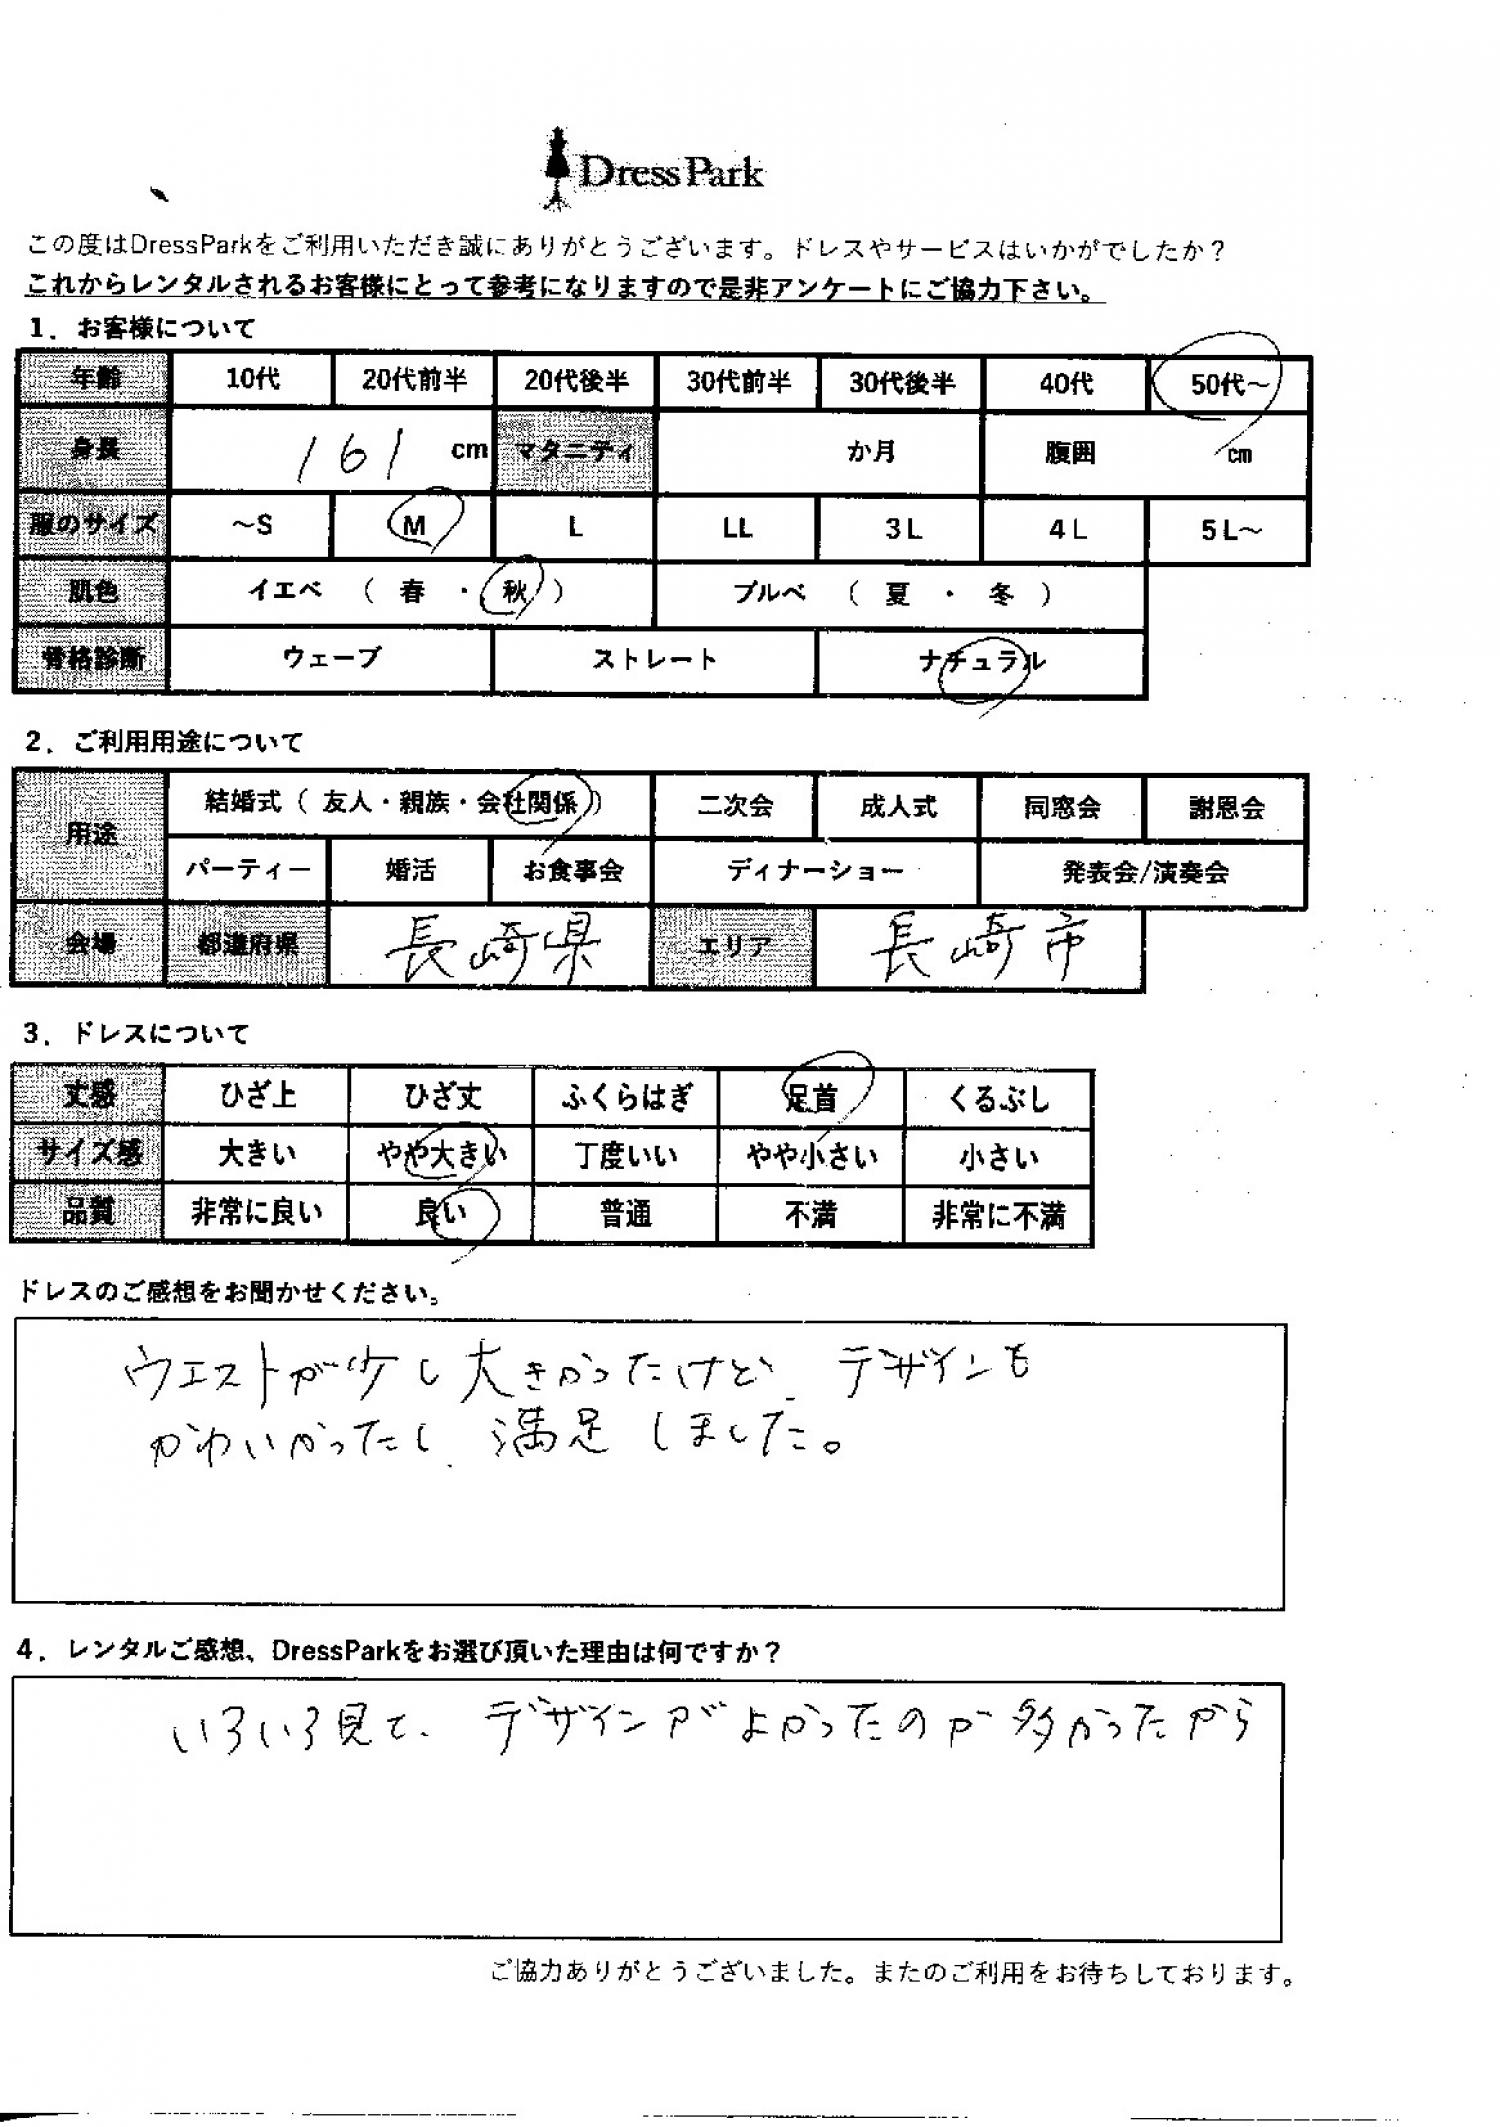 DressPark
この度はDressParkをご利用いただき誠にありがとうございます。ドレスやサービスはいかがでしたか？
これからレンタルされるお客様にとって参考になりますので是非アンケートにご協力下さい。
1．お客様について
年齢 10代 20代前半 20代後半 30代前半 30代後半 40代 50代～
身長 161 cm マタニティ か月 腹囲 cm
服のサイズ ～S M L LL 3L 4L 5L～
肌色 イエベ （ 春 ・ 秋 ） ブルベ （ 夏 ・ 冬 ）
骨格診断 ウェーブ ストレート ナチュラル
2．ご利用用途について
用途 結婚式（ 友人・親族・会社関係 ） 二次会 成人式 同窓会 謝恩会
パーティー 婚活 お食事会 ディナーショー 発表会/演奏会
会場 都道府県 長崎県 エリア 長崎市
3．ドレスについて
丈感 ひざ上 ひざ丈 ふくらはぎ 足首 くるぶし
サイズ感 大きい やや大きい 丁度いい やや小さい 小さい
品質 非常に良い 良い 普通 不満 非常に不満
ドレスのご感想をお聞かせください。
ウエストが少し大きかったけど、デザインも
かわいかったし、満足しました。
4．レンタルご感想、DressParkをお選び頂いた理由は何ですか？
いろいろ見て、デザインがよかったのが多かったから
ご協力ありがとうございました。またのご利用をお待ちしております。